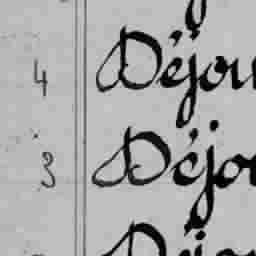 4 Déjou
3 Déjou